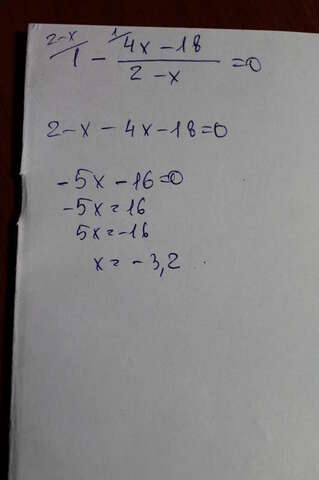 2-x/ 1 - 1/ (4x-18)/(2-x) =0
2-x-4x-18=0
-5x-16=0
-5x=16
5x=-16
x=-3,2